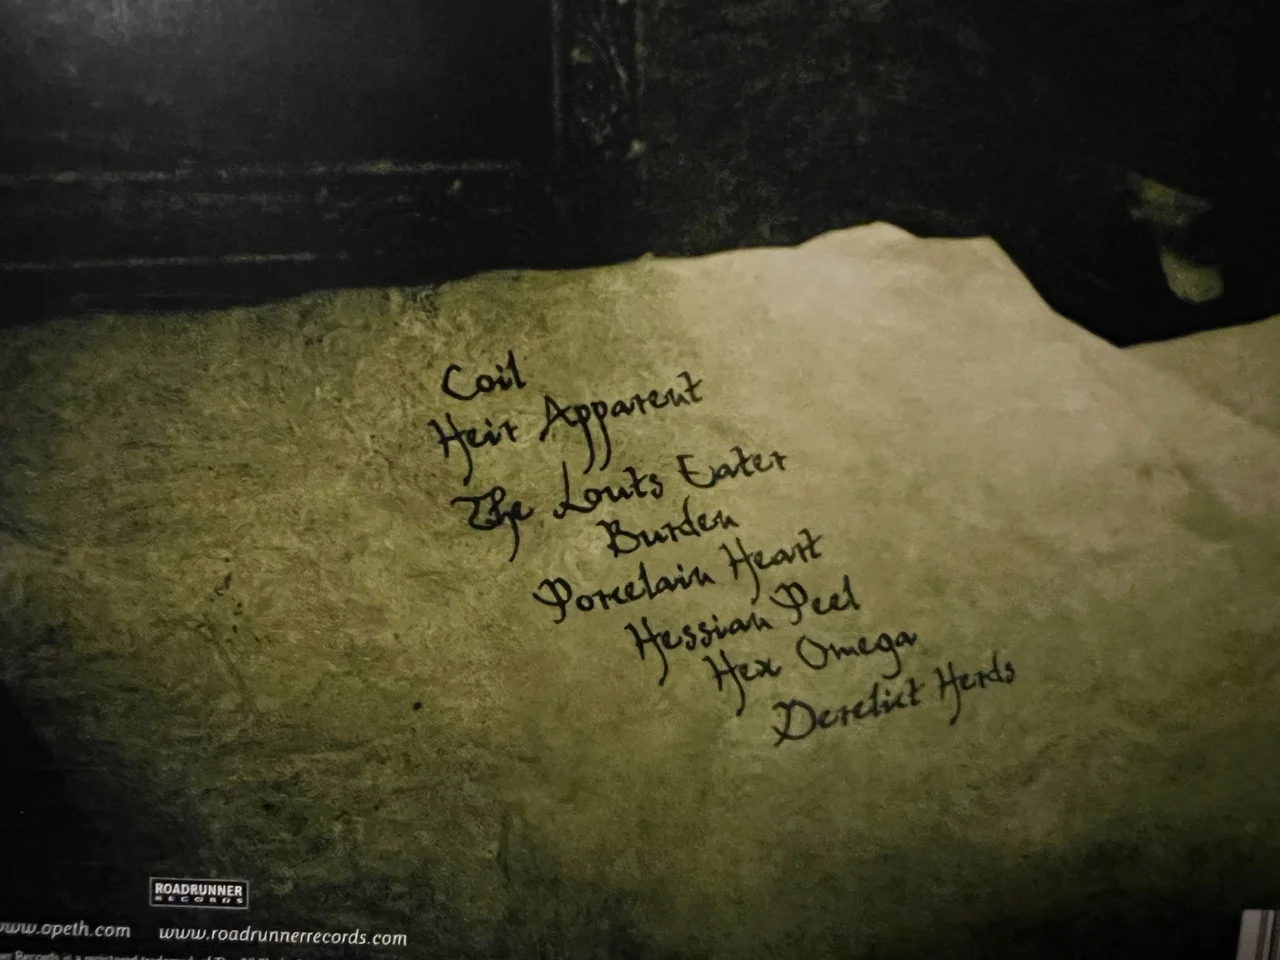 Coil
Heir Apparent
The Louts Eater
Burden
Porcelain Heart
Hessian Peel
Hex Omega
Derelict Herds
ROADRUNNER
RECORDS
www.opeth.com www.roadrunnerrecords.com
Records is a registered trademark of